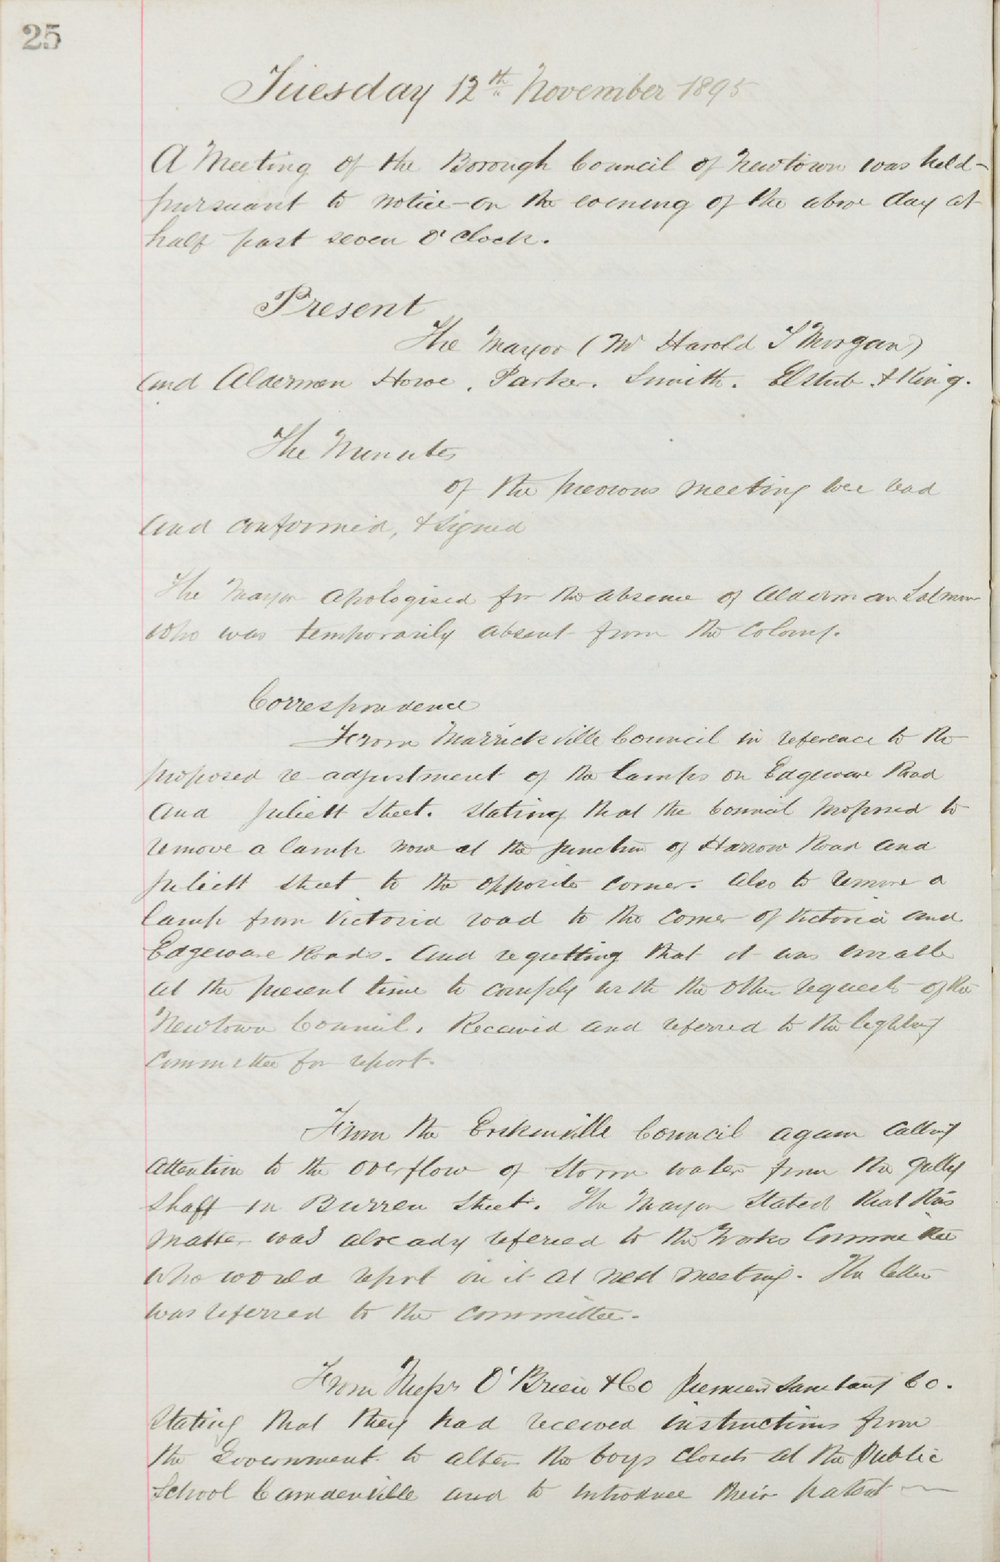 25
Tuesday 12th November 1895
A Meeting of the Borough Council of Newtown was held-
pursuant to notice - on the evening of the above day at
half past seven O'Clock.
Present
The Mayor (Mr Harold T Morgan)
and Aldermen Howe, Parker. Smith. Elstub & King.
The Minutes
of the previous meeting were read
and confirmed, & signed
The Mayor apologised for the absence of Alderman Salmon
who was temporarily absent from the Colony.
Correspondence
From Marrickville Council in reference to the
proposed re-adjustment of the lamps on Edgeware Road
and Juliett Street. stating that the Council proposed to
remove a lamp now at the junction of Harrow Road and
Juliett street to the opposite corner. Also to remove a
lamp from Victoria road to the corner of Victoria and
Edgeware Roads. And regretting that it was unable
at the present time to comply with the other requests of the
Newtown Council. Received and referred to the lighting
Committee for report.
From the Erskinville Council again calling
attention to the overflow of storm water from the gully
shaft in Burren Street. The Mayor stated that this
matter was already refered to the Works Committee
who would report on it at next meeting. The letter
was referred to the committee.
From Messrs O'Brien & Co Sanitary Co.
stating that they had received instructions from
the Government to alter the boys closets at the Public
School Camdenville and to introduce their patent